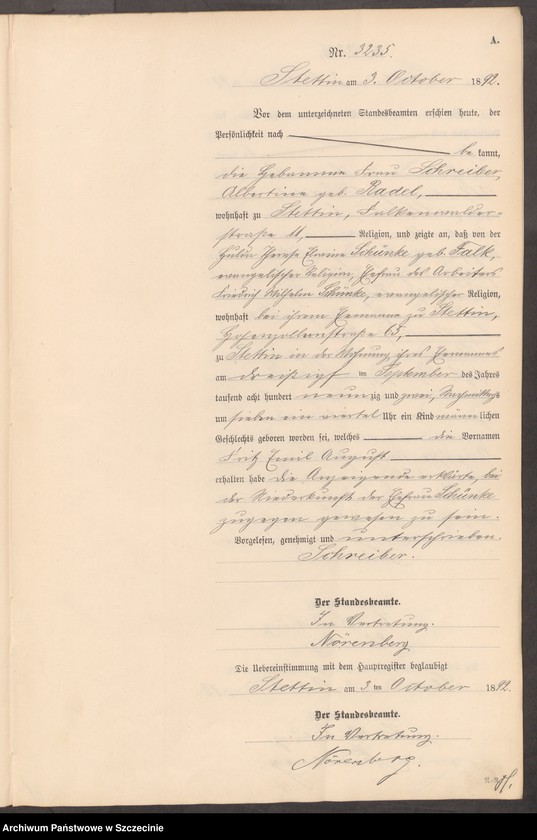 A.
Nr. 3235.
Stettin am 3. October 1892.
Vor dem unterzeichneten Standesbeamten erschien heute, der
Persönlichkeit nach
be kannt,
die Hebamme Frau Schreiber,
Albertine geb. Radel,
wohnhaft zu Stettin, Falkenwalder-
straße 11, Religion, und zeigte an, daß von der
Therese Schünke geb. Falk,
evangelischer Religion, Ehefrau des Arbeiters
Friedrich Wilhelm Schünke, evangelischer Religion,
wohnhaft bei ihrem Ehemanne zu Stettin,
Hohenzollernstraße 65,
zu Stettin in der Wohnung ihres Ehemannes
am dreißigsten September des Jahres
tausend acht hundert neunzig und zwei, Nachmittags
um sieben ein viertel Uhr ein Kind männlichen
Geschlechts geboren worden sei, welches die Vornamen
Fritz Emil August
erhalten habe die Anzeigende erklärte, bei
der Niederkunft der Ehefrau Schünke
zugegen gewesen zu sein.
Vorgelesen, genehmigt und unterschrieben.
Schreiber.
Der Standesbeamte.
In Vertretung.
Nörenberg
Die Uebereinstimmung mit dem Hauptregister beglaubigt
Stettin am 3 ten October 1892.
Der Standesbeamte.
In Vertretung.
Nörenberg.
Archiwum Państwowe w Szczecinie